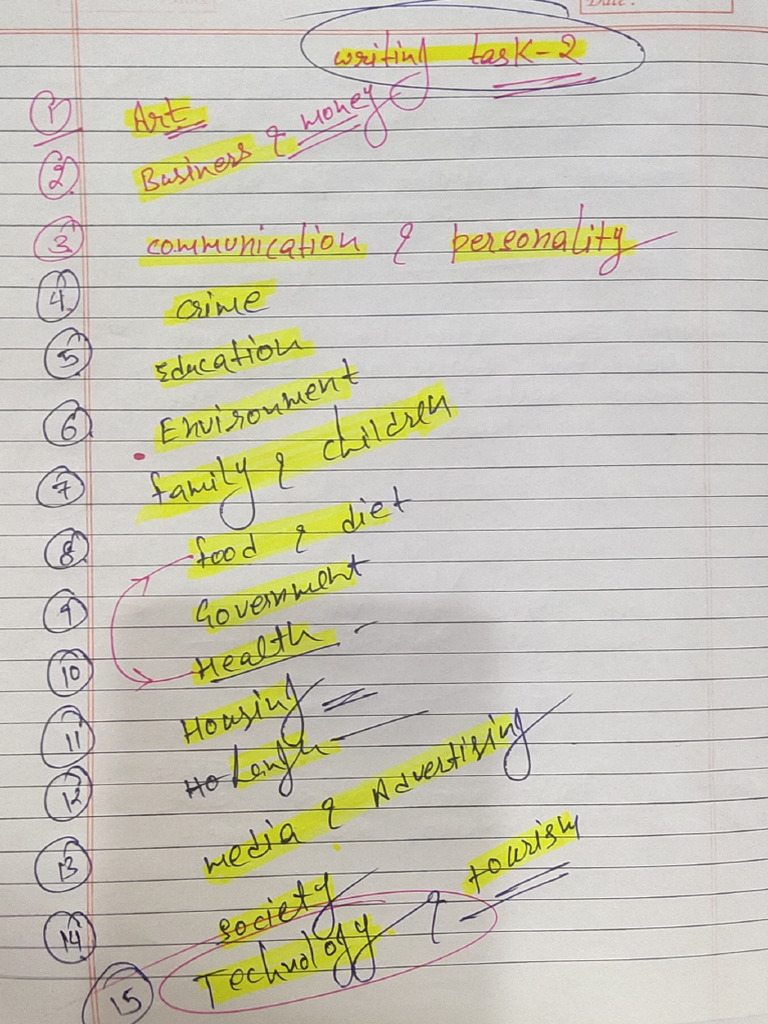 Date:
writing task-2
① Art
② Business & money
③ communication & personality
④ crime
⑤ Education
⑥ Environment
⑦ family & children
⑧ food & diet
⑨ Government
⑩ Health
⑪ Housing
⑫
⑬ media & Advertising
⑭ society
⑮ Technology & tourism